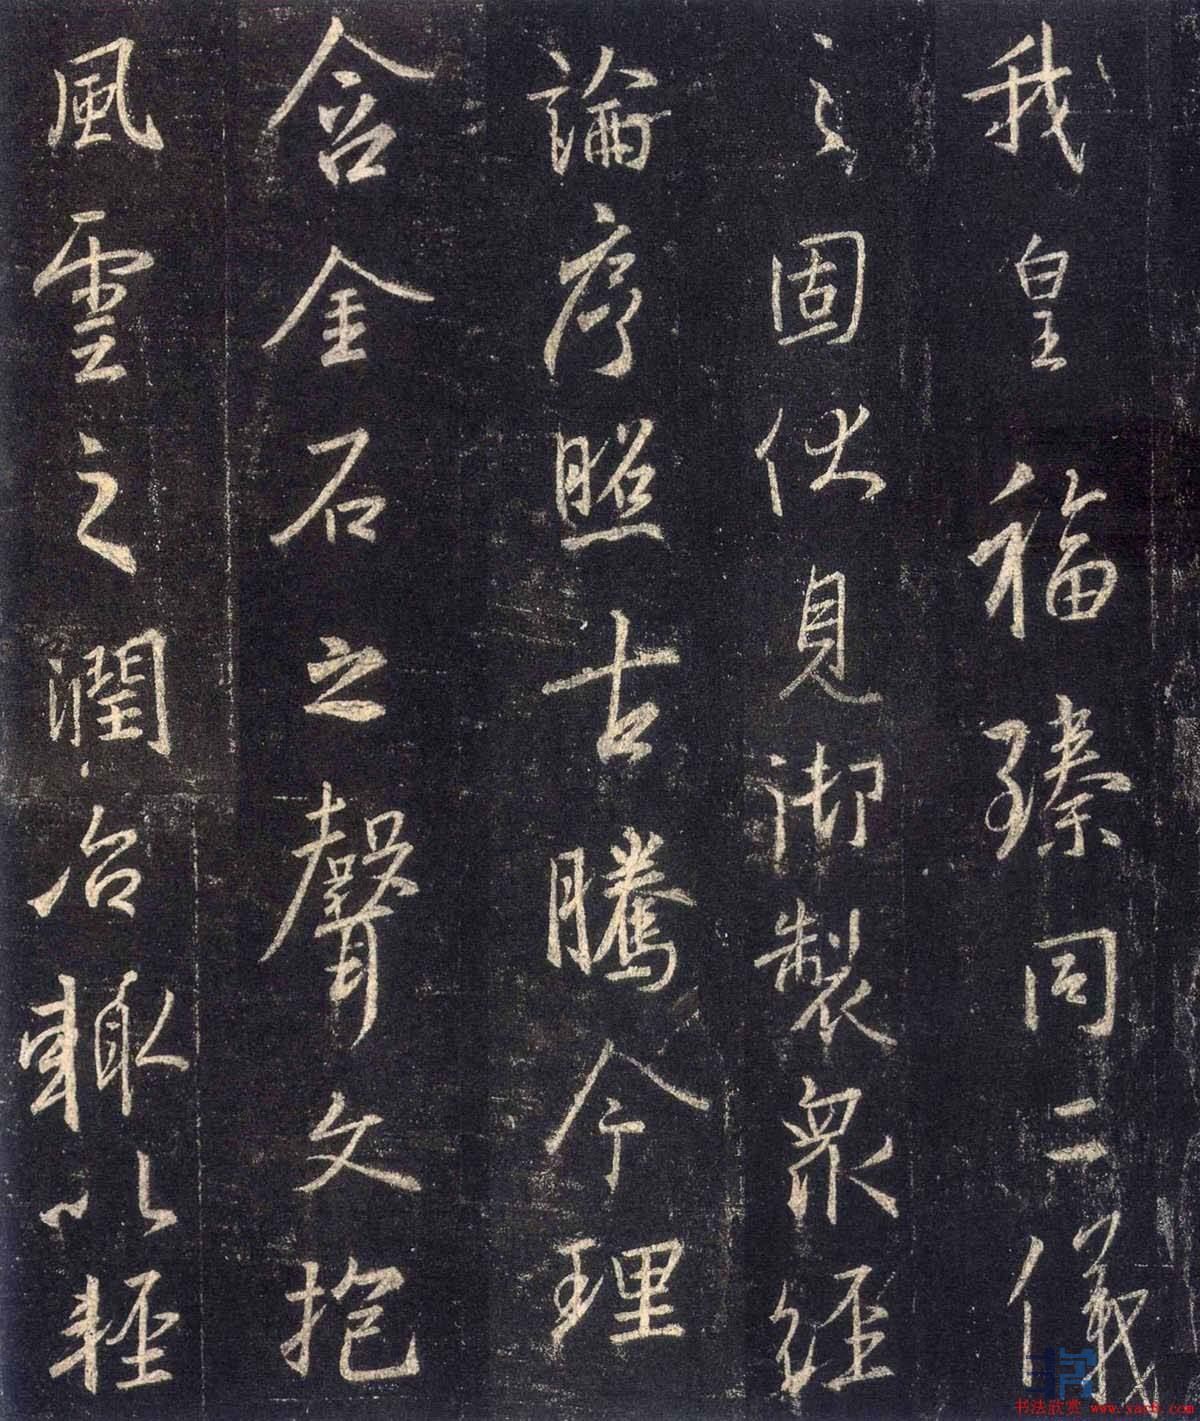 我皇福臻同二儀
之固伏見御製眾經
論序照古騰今理
含金石之聲文抱
風雲之潤治輒以輕
书法欣赏 www.yac8.com